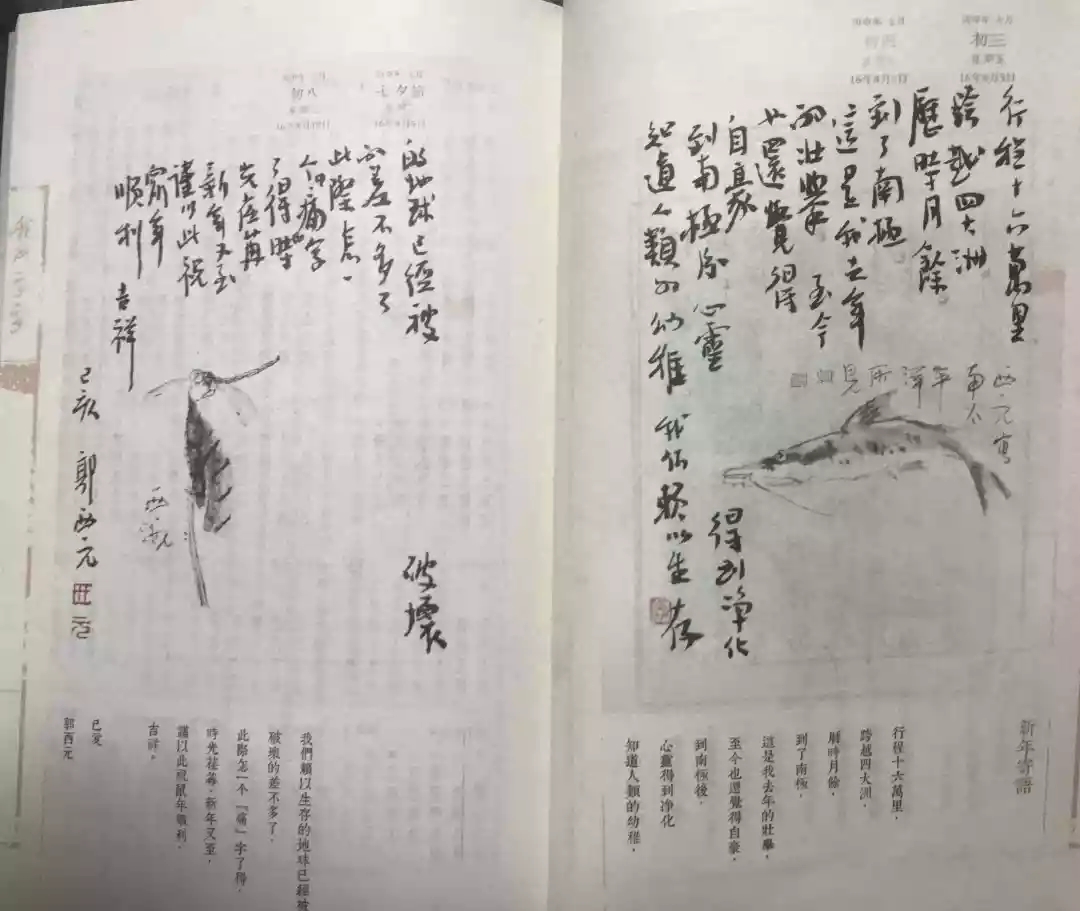 初三
行程十六萬里
跨越四大洲
歷時月餘
到了南極
這是我去年
的壯舉 至今
也還覺得
自豪
到南極後 心靈得到净化
知道人類的幼稚 我们賴以生存
西元寫
南太
平
洋
所
見
新年寄語
行程十六萬里，
跨越四大洲，
歷時月餘，
到了南極，
這是我去年的壯舉，
至今也還覺得自豪，
到南極後，
心靈得到净化
知道人類的幼稚，
七夕節
初八
的地球已經被破壞
的差不多了
此際怎一
个痛字
了得 時
光荏苒
新年又至
謹以此祝
鼠年
順利 吉祥
己亥 郭西元
西元
我們賴以生存的地球已經被
破壞的差不多了，
此際怎一个「痛」字了得，
時光荏苒，新年又至，
謹以此祝鼠年順利，
吉祥。
己亥
郭西元